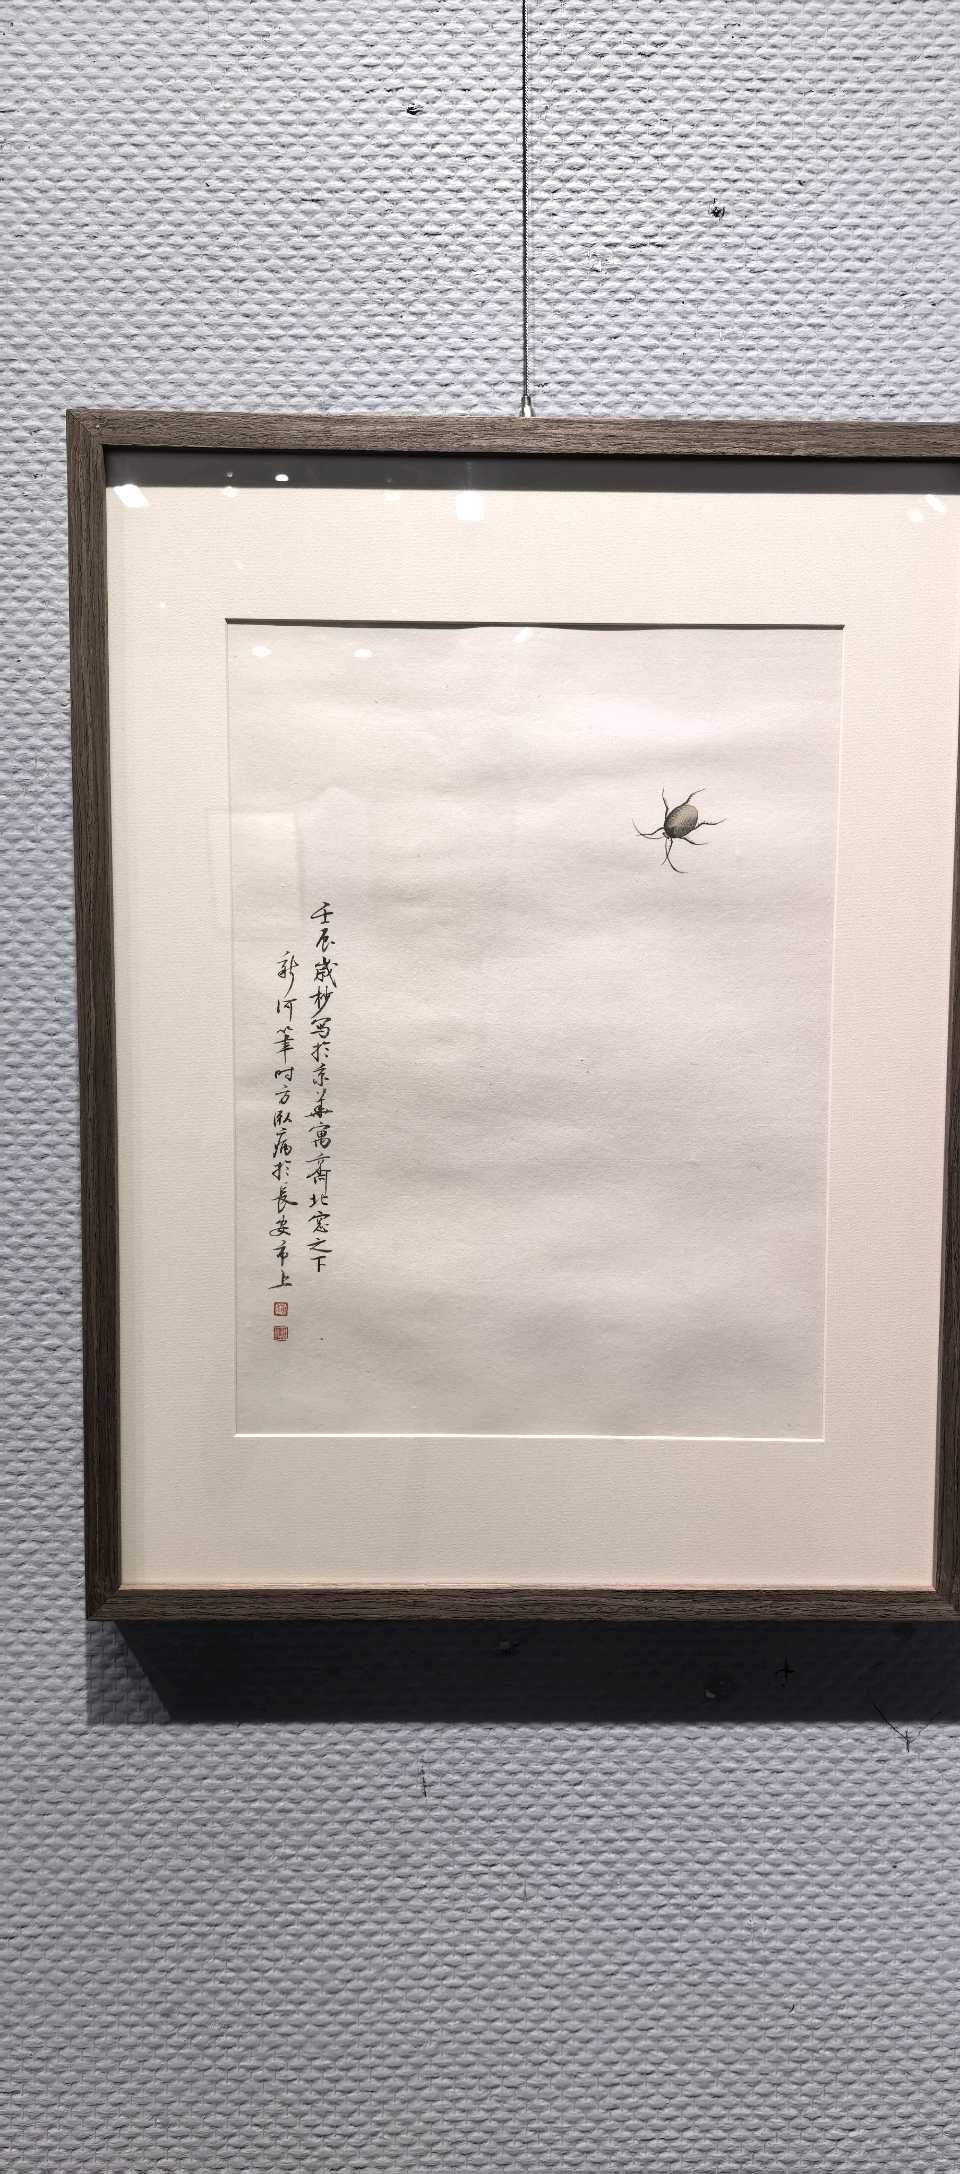 壬辰歲杪写於京華寓齋北窓之下
新河筆时方臥病於長安市上